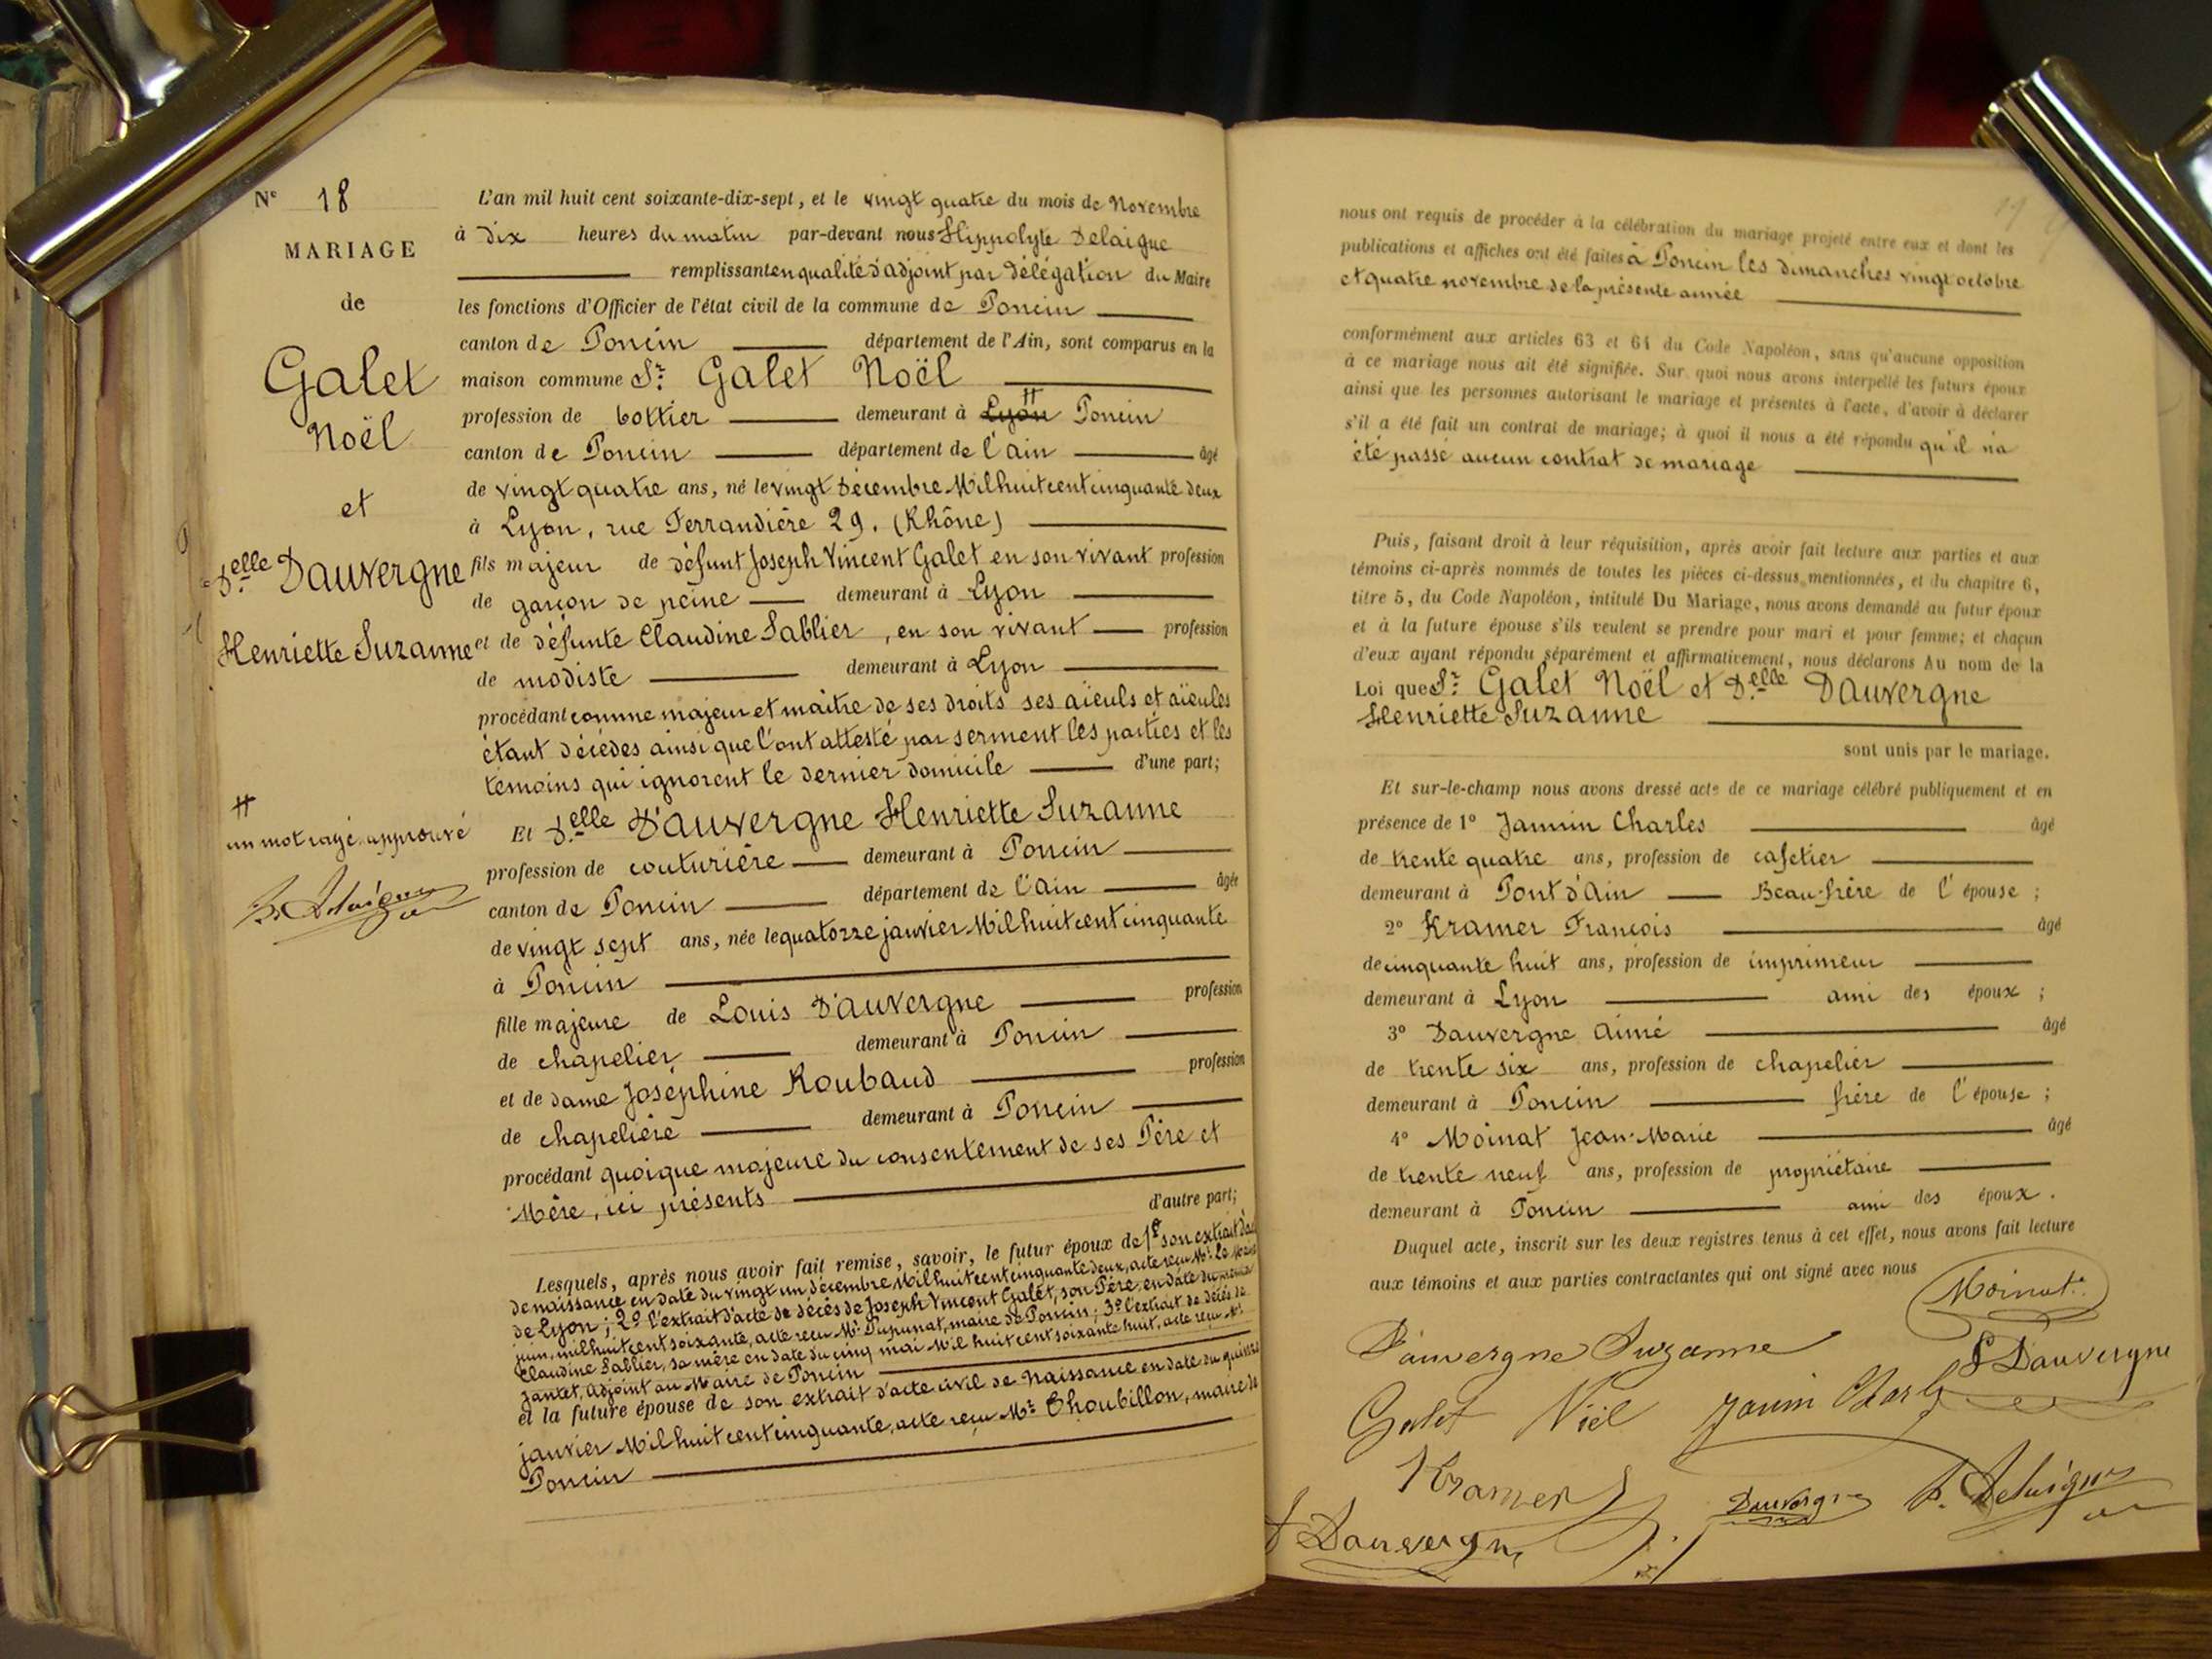 Nº 18
MARIAGE
de
Galet
Noël
et
Delle Dauvergne
Henriette Suzanne
un mot rayé approuvé
L'an mil huit cent soixante-dix-sept, et le vingt quatre du mois de Novembre
à dix heures du matin par-devant nous Hippolyte Delaigue
remplissant en qualité d'adjoint par délégation du Maire
les fonctions d'Officier de l'état civil de la commune de Poncin
canton de Poncin département de l'Ain, sont comparus en la
maison commune Sr Galet Noël
profession de bottier demeurant à Lyon Poncin
canton de Poncin département de l'ain âgé
de vingt quatre ans, né le vingt Décembre Mil huit cent cinquante deux
à Lyon, rue Ferrandière 29. (Rhône)
fils majeur de défunt Joseph Vincent Galet en son vivant profession
de garçon de peine demeurant à Lyon
et de défunte Claudine Sablier, en son vivant profession
de modiste demeurant à Lyon
procédant comme majeur et maître de ses droits ses aïeuls et aïeules
étant décédés ainsi que l'ont attesté par serment les parties et les
témoins qui ignorent le dernier domicile d'une part;
Et Delle D'auvergne Henriette Suzanne
profession de couturière demeurant à Poncin
canton de Poncin département de l'Ain âgée
de vingt sept ans, née le quatorze janvier Mil huit cent cinquante
à Poncin
fille majeure de Louis D'auvergne profession
de chapelier demeurant à Poncin
et de dame Joséphine Roubaud profession
de chapelière demeurant à Poncin
procédant quoique majeure du consentement de ses Père et
Mère, ici présents d'autre part;
Lesquels, après nous avoir fait remise, savoir, le futur époux de 1º son extrait d'acte
de naissance en date du vingt un décembre Mil huit cent cinquante deux, acte reçu Mr. le Maire
de Lyon; 2º l'extrait d'acte de décès de Joseph Vincent Galet, son Père, en date du
juin, mil huit cent soixante, acte reçu Mr maire de Poncin; 3º l'extrait de décès de
Claudine Sablier, sa mère en date du cinq mai Mil huit cent soixante huit, acte reçu Mr.
Jantet, adjoint au Maire de Poncin
et la future épouse de son extrait d'acte civil de naissance en date du quinze
janvier Mil huit cent cinquante, acte reçu Mr Thoubillon, maire de
Poncin
nous ont requis de procéder à la célébration du mariage projeté entre eux et dont les
publications et affiches ont été faites à Poncin les dimanches vingt octobre
et quatre novembre de la présente année
conformément aux articles 63 et 64 du Code Napoléon, sans qu'aucune opposition
à ce mariage nous ait été signifiée. Sur quoi nous avons interpellé les futurs époux
ainsi que les personnes autorisant le mariage et présentes à l'acte, d'avoir à déclarer
s'il a été fait un contrat de mariage; à quoi il nous a été répondu qu'il n'a
été passé aucun contrat de mariage
Puis, faisant droit à leur réquisition, après avoir fait lecture aux parties et aux
témoins ci-après nommés de toutes les pièces ci-dessus mentionnées, et du chapitre 6,
titre 5, du Code Napoléon, intitulé Du Mariage, nous avons demandé au futur époux
et à la future épouse s'ils veulent se prendre pour mari et pour femme; et chacun
d'eux ayant répondu séparément et affirmativement, nous déclarons Au nom de la
Loi que Sr Galet Noël et Delle Dauvergne
Henriette Suzanne
sont unis par le mariage.
Et sur-le-champ nous avons dressé acte de ce mariage célébré publiquement et en
présence de 1º Jannin Charles âgé
de trente quatre ans, profession de cafetier
demeurant à Pont d'Ain Beau-frère de l'épouse;
2º Kramer François âgé
de cinquante huit ans, profession de imprimeur
demeurant à Lyon ami des époux;
3º Dauvergne Aimé âgé
de trente six ans, profession de chapelier
demeurant à Poncin frère de l'épouse;
4º Moinat Jean-Marie âgé
de trente neuf ans, profession de propriétaire
demeurant à Poncin ami des époux.
Duquel acte, inscrit sur les deux registres tenus à cet effet, nous avons fait lecture
aux témoins et aux parties contractantes qui ont signé avec nous
Moinat
Dauvergne Suzanne
Dauvergne
Galet Noël
Kramer
Dauvergne
H. Delaigue
Dauvergne